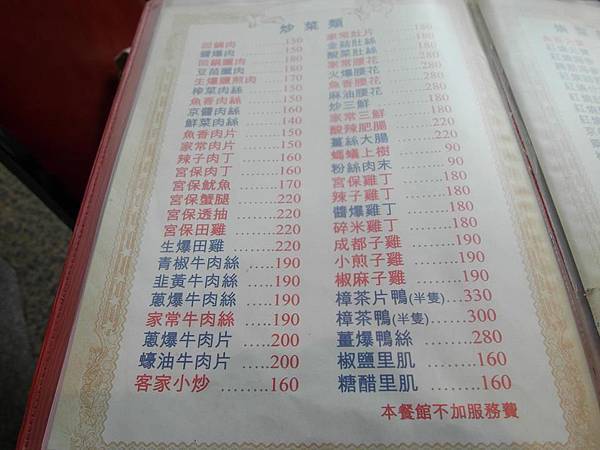 炒菜類
回鍋肉......150
醬爆肉......150
回鍋臘肉......180
豆苗臘肉......180
生爆鹽煎肉......170
榨菜肉絲......150
魚香肉絲......150
京醬肉絲......160
鮮菜肉絲......140
魚香肉片......150
家常肉片......150
辣子肉丁......160
宮保肉丁......160
宮保魷魚......170
宮保蟹腿......220
宮保透抽......220
宮保田雞......220
生爆田雞......220
青椒牛肉絲......190
韭黃牛肉絲......190
蔥爆牛肉絲......190
家常牛肉絲......190
蔥爆牛肉片......200
蠔油牛肉片......200
客家小炒......160
家常肚片......180
金菇肚絲......180
酸菜肚絲......180
家常腰花......280
火爆腰花......280
魚香腰花......280
麻油腰花......280
炒三鮮......180
家常三鮮......180
酸辣肥腸......220
薑絲大腸......220
螞蟻上樹......90
粉絲肉末......90
宮保雞丁......180
辣子雞丁......180
醬爆雞丁......180
碎米雞丁......180
成都子雞......190
小煎子雞......190
椒麻子雞......190
樟茶片鴨(半隻)...330
樟茶鴨(半隻)......300
薑爆鴨絲......280
椒鹽里肌......160
糖醋里肌......160
本餐館不加服務費